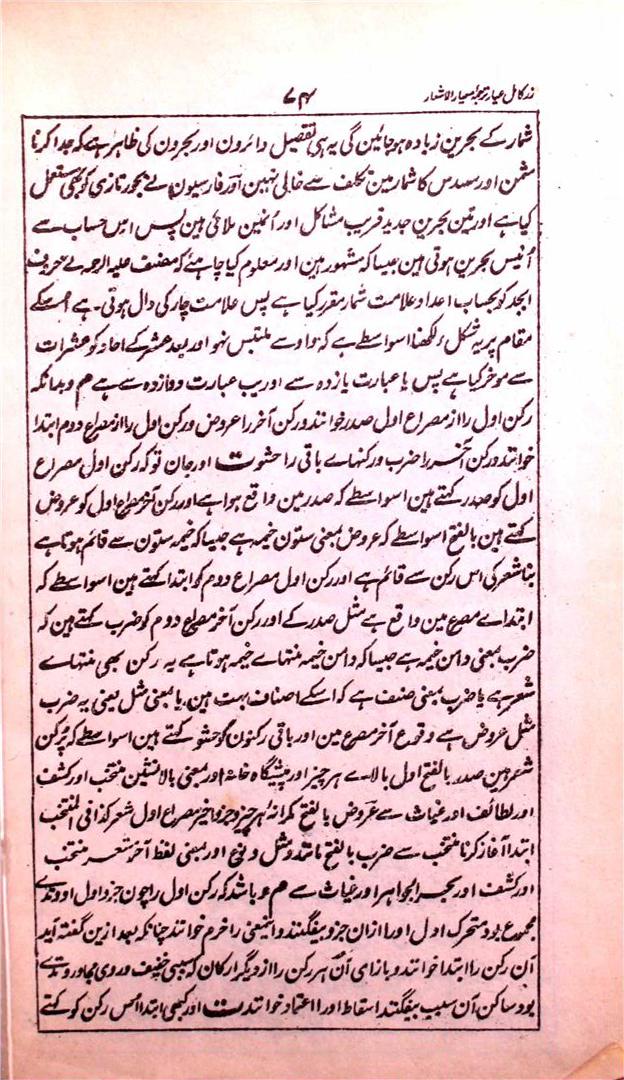 زر کامل عیار ترجمۂ معیار الاشعار ۷۴
شمار کے بحرین زیادہ ہو جائین گی یہ ہی تفصیل دائرون اور بحرون کی ظاہر ہے کہ جدا کرنا
مثمن اور مسدس کا شمار مین تکلف سے خالی نہین اور فارسیون نے بحور تازی کو بھی مستعمل
کیا ہے اور تین بحرین جدید قریب مشاکل اور اُنمین ملائی ہین پس اس حساب سے
اُنیس بحرین ہوتی ہین جیسا کہ مشہور ہین اور معلوم کیا چاہئے کہ مصنف علیہ الرحمہ نے حروف
ابجد کو بحساب اعداد علامت شمار مقرر کیا ہے پس علامت چار کی دال ہوتی ہے اسکے
مقام پر یہ شکل لکھنا اسواسطے ہے کہ واو سے ملتبس نہو اور بعد عشر کے احاد کو عشرات
سے موخر کیا ہے پس یا عبارت یازدہ سے اور یب عبارت دوازدہ سے ہے م وبدانکہ
رکن اول را از مصراع اول صدر خوانند و رکن آخر را عروض و رکن اول را از مصراع دوم ابتدا
خوانند و رکن آخر را ضرب و رکنہاے باقی را حشو ت اور جان تو کہ رکن اول مصراع
اول کو صدر کہتے ہین اسواسطے کہ صدر مین واقع ہوا ہے اور رکن آخر مصراع اول کو عروض
کہتے ہین بالفتح اسواسطے کہ عروض بمعنی ستون خیمہ ہے جیسا کہ خیمہ ستون سے قائم ہوتا ہے
بنا شعر کی اس رکن سے قائم ہے اور رکن اول مصراع دوم کو ابتدا کہتے ہین اسواسطے کہ
ابتداے مصرع مین واقع ہے مثل صدر کے اور رکن آخر مصراع دوم کو ضرب کہتے ہین کہ
ضرب بمعنی دامن خیمہ ہے جیسا کہ دامن خیمہ منتہاے خیمہ ہوتا ہے یہ رکن بھی منتہاے
شعر ہے یا ضرب بمعنی صنف ہے کہ اسکے اصناف بہت ہین یا بمعنی مثل یعنی یہ ضرب
مثل عروض ہے وقوع آخر مصرع مین اور باقی رکنون کو حشو کہتے ہین اسواسطے کہ پرکن
شعر ہین صدر بالفتح اول بالاے ہر چیز اور پیشگاہ خانہ اور بمعنی بالانشین منتخب اور کشف
اور لطائف اور غیاث سے عروض بالفتح کرانہ ہر چیز و جزو اخیر مصراع اول شعر کذا فی المنتخب
ابتدا آغاز کرنا منتخب سے ضرب بالفتح مانند و مثل و نوع اور بمعنی لفظ آخر شعر منتخب
اور کشف اور بحر الجواہر اور غیاث سے م و باشد کہ رکن اول را چون جزو اول او وتدے
مجموع بود متحرک اول او را ازان جزو بیفگنند و اینمعنی را خرم خوانند چنانکہ بعد ازین گفتہ آید
آن رکن را ابتدا خوانند و بازاے آن ہر رکن را از دیگر ارکان کہ سببی خفیف در وی مجاور وتدے
بود ساکن آن سبب بیفگنند اسقاط او را اعتماد خوانند ت اور کبھی ابتدا اُس رکن کو کہتے